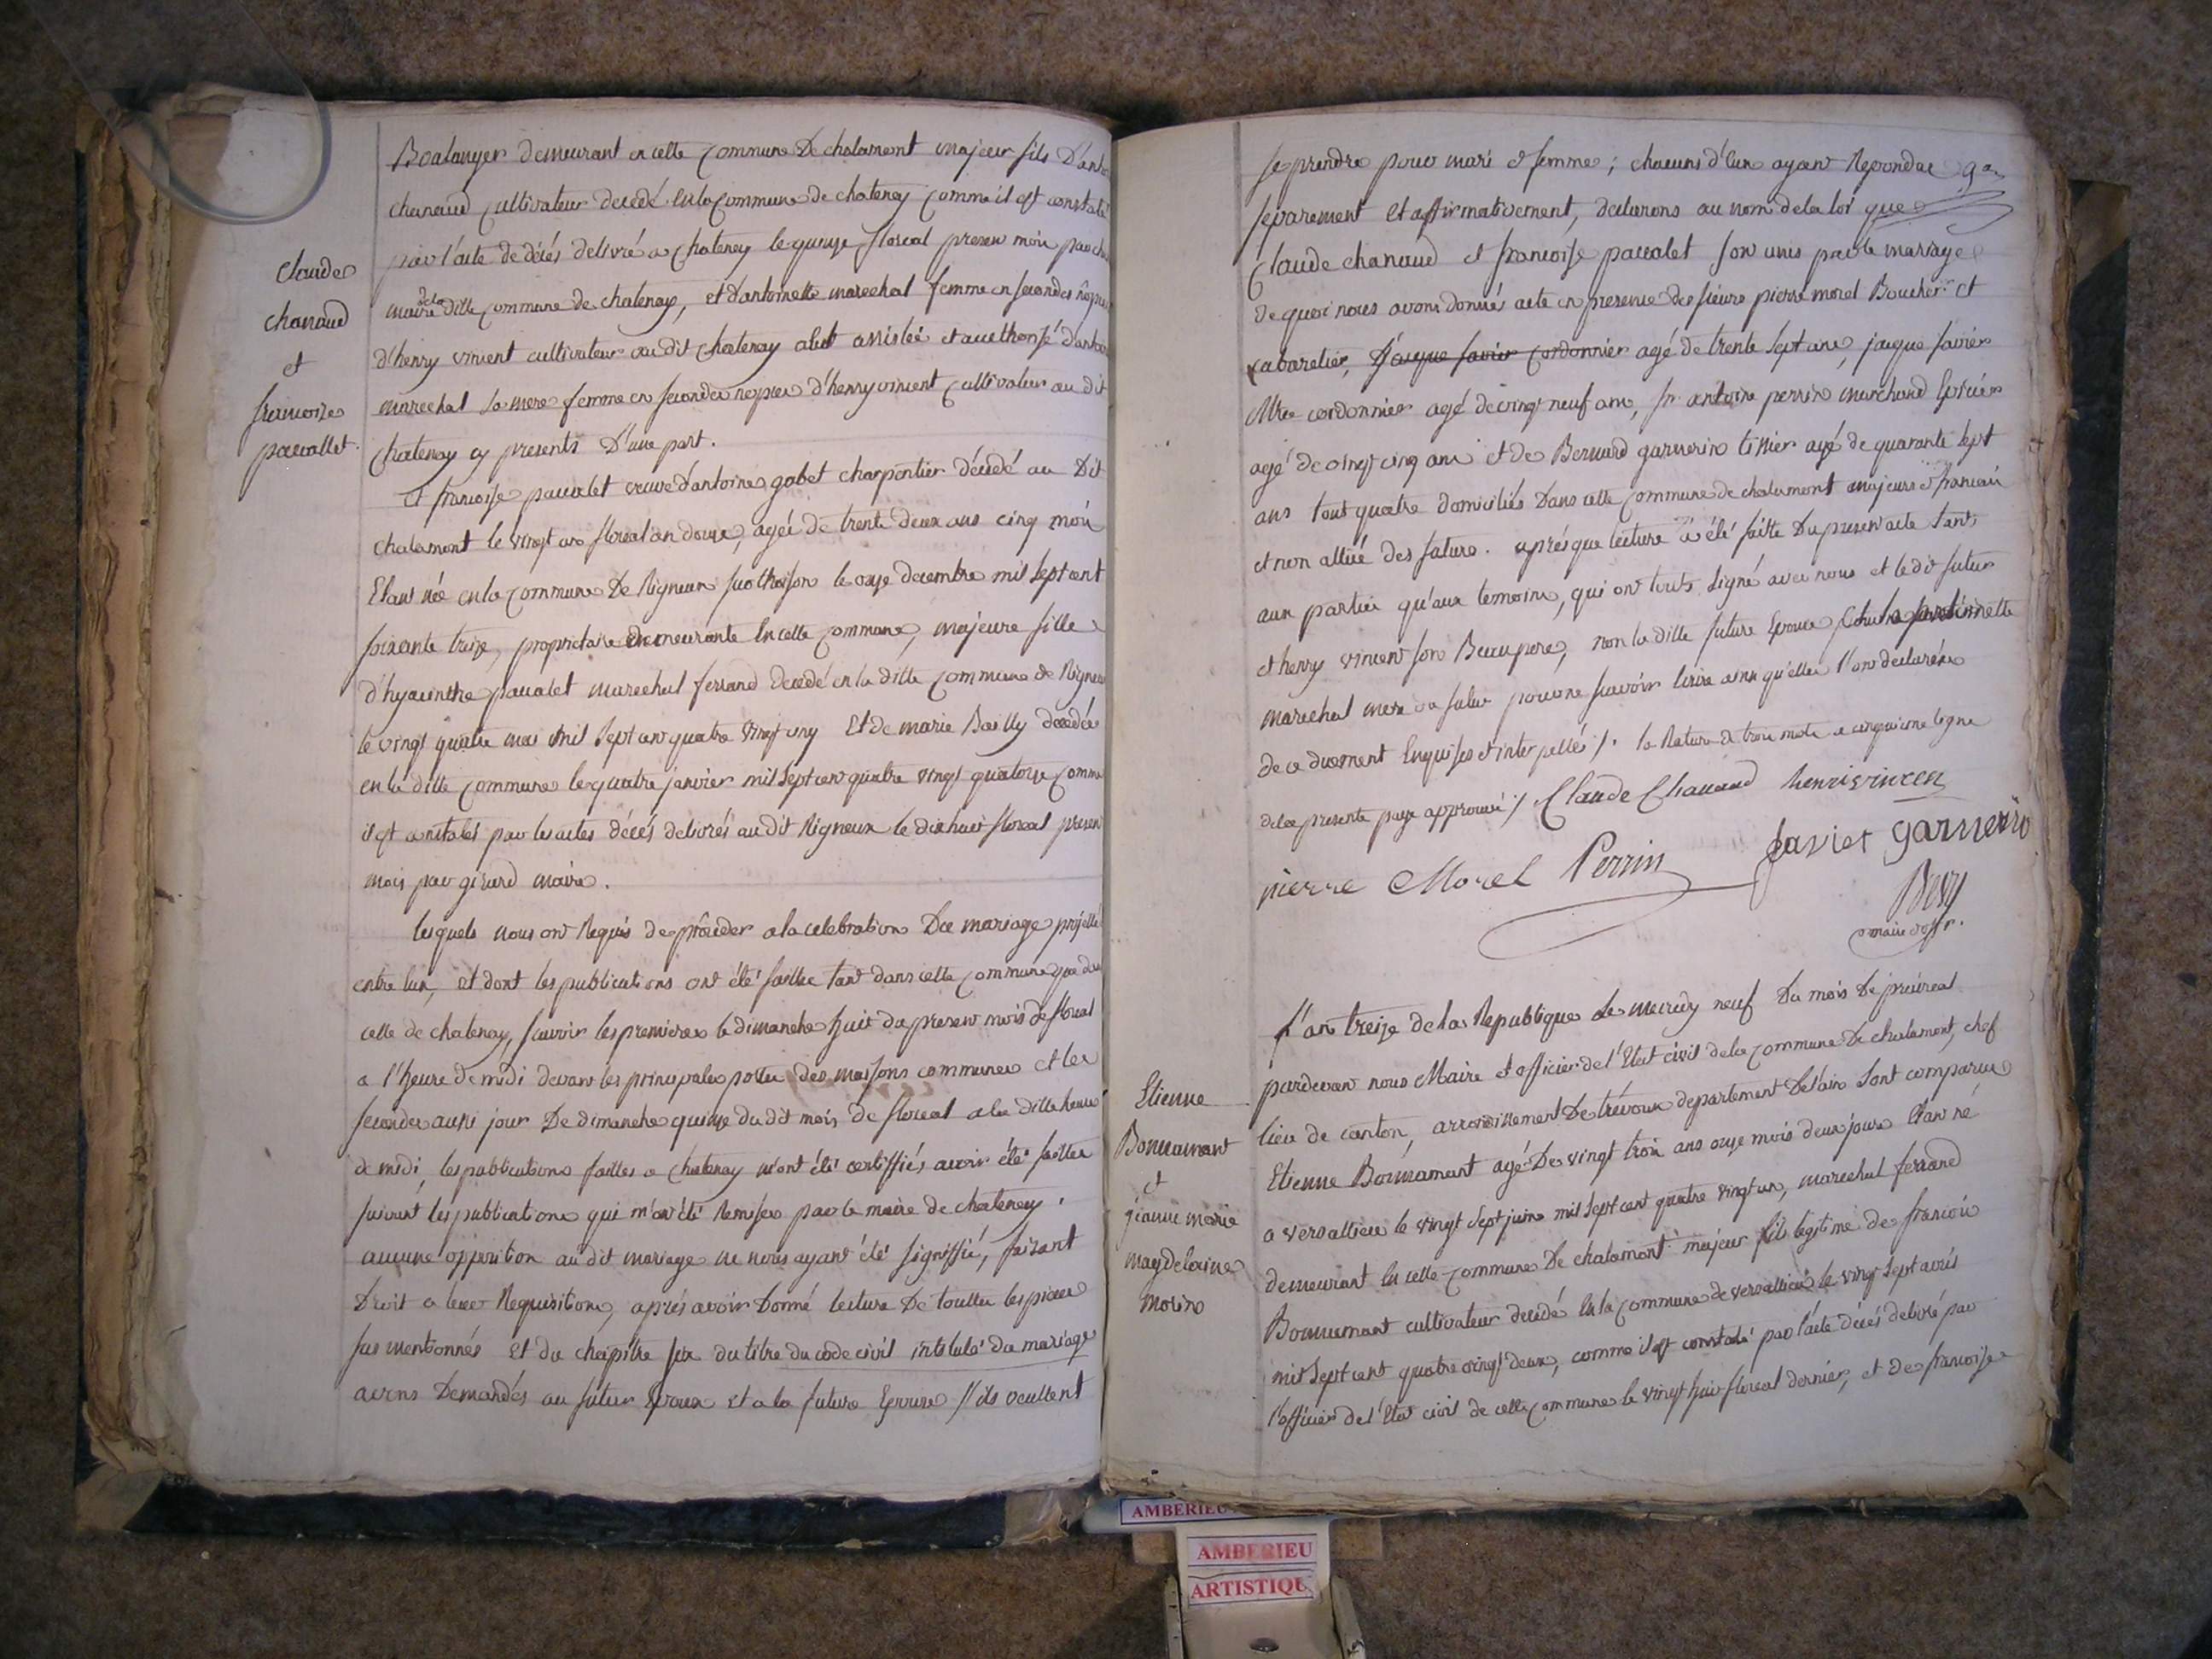 Claude
chanaud
et
francoise
pauvallet.
Boulanger demeurant en cette commune De chalamont majeur fils D'antoi
chanaud cultivateur decedé en la commune de chatenay comme il est constaté
par l'acte de décés delivré a Chatenay le quinze floreal present mois par
maire de la ditte commune de chatenay, et d'antoinette marechal femme en secondes
d'henry vincent cultivateur au dit Chatenay assistée et aucthorisé d'antoi
marechal sa mere femme en secondes nopces d'henry vincent cultivateur au dit
Chatenay cy presents D'une part.
Et francoise pauvalet veuve d'antoine gobet charpentier décedé au Dit
chalamont le vingt un floreal an douze, agée de trente deux ans cinq mois
Etant née en la commune De Rigneux le onze decembre mil sept cent
soixante treize, proprietaire demeurante En cette commune, majeure fille
d'hyacinthe pauvalet marechal ferrand decedé en la ditte commune de Rigneux
le vingt quatre mai mil sept cent quatre vingt ony Et de marie Bailly decedée
en la ditte commune le quatre janvier mil sept cent quatre vingt quatorze comme
il est constatés par les actes décés delivrés au dit Rigneux le dix huit floreal present
mois par girard maire.
lesquels nous ont Requis de procéder a la celebration Du mariage projetté
entre eux, et dont les publications ont été faittes tant dans cette commune que dans
celle de chatenay, savoir les premieres le dimanche huit du present mois de floreal
a l'heure de midi devant les principales portes des maisons communes et les
secondes aussi jour De dimanche quinze du dit mois de floreal a la ditte heure
de midi, les publications faittes a Chatenay m'ont été certiffiés avoir été faittes
suivant les publications qui m'ont été Remises par le maire de chatenay,
aucune opposition au dit mariage ne nous ayant été signiffié, faisant
Droit a leur Requisition, aprés avoir Donné lecture De touttes les pieces
sus mentionnés Et du chapitre six du titre du code civil intitulé du mariage
avons Demandés au futur Epoux et a la future Epouse s'ils veullent
se prendre pour mari et femme; chacuns d'eux ayant Repondu
séparement Et affirmativement, declarons au nom de la loi que
Claude chanaud et francoise pauvalet son unis par le mariage
de quoi nous avons donnés acte en presence des sieurs pierre morel Boucher et
cabaretier, Jacque Javier cordonnier agé de trente sept ans, jacque favier
Mtre cordonnier agé de vingt neuf ans, sr antoine perrin marchand Epicier
agé de vingt cinq ans et de Bernard garnerin titier agé de quarante sept
ans tout quatre domiciliés Dans cette commune de chalamont majeurs et francais
et non allié des futurs. aprés que lecture a été faitte Du present acte tant
aux parties qu'aux temoins, qui ont touts signé avec nous et le dit futur
et henry vincent son Beaupere, non la ditte future Epouse antoinette
marechal mere du futur pour ne scavoir Ecrire ainsi qu'elles l'ont declarées
de ce duement Enquises et interpellés /. la Rature de trois mots a cinquieme ligne
de la presente page approuvé / Claude Chanaud henri vincen
pierre Morel Perrin favier garnerin
Bevy
maire offr.
Etienne
Bonnamant
et
jeanne marie
magdelaine
morin
L'an treize de la Republique Le mecredy neuf Du mois De préireal
pardevant nous Maire et officier de l'Etat civil de la commune De chalamont, chef
lieu de canton, arrondissement De trévoux departement De l'ain Sont comparus
Etienne Bonnamant agé De vingt trois ans onze mois deux jours Etant né
a versallieu le vingt sept juin mil sept cent quatre vingt un, marechal ferrand
demeurant En cette commune De chalamont majeur fils legitime de francois
Bonnemant cultivateur decedé En la commune de versallieu le vingt sept avril
mil sept cent quatre vingt deux, comme il est constaté par l'acte décés delivré par
l'officier de l'Etat civil de cette commune le vingt huit floreal dernier, et de francoise
AMBERIEU
AMBERIEU
ARTISTIQU